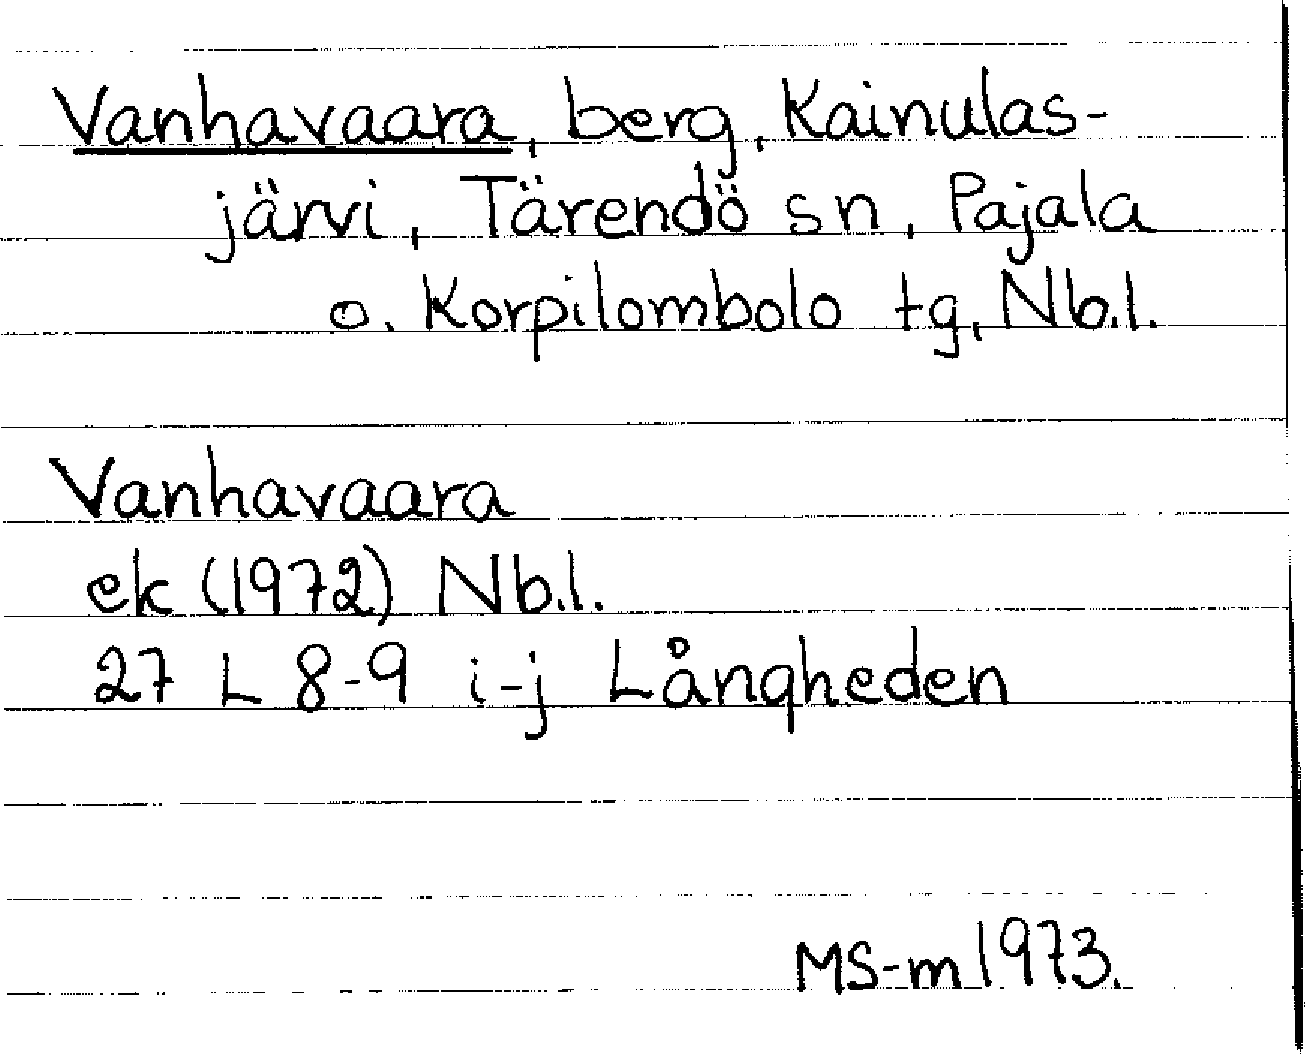 Vanhavaara, berg, Kainulas-
järvi, Tärendö sn, Pajala
o. Korpilombolo tg, Nb.l.
Vanhavaara
ek (1972) Nb.l.
27 L 8-9 i-j Långheden
MS-m 1973.